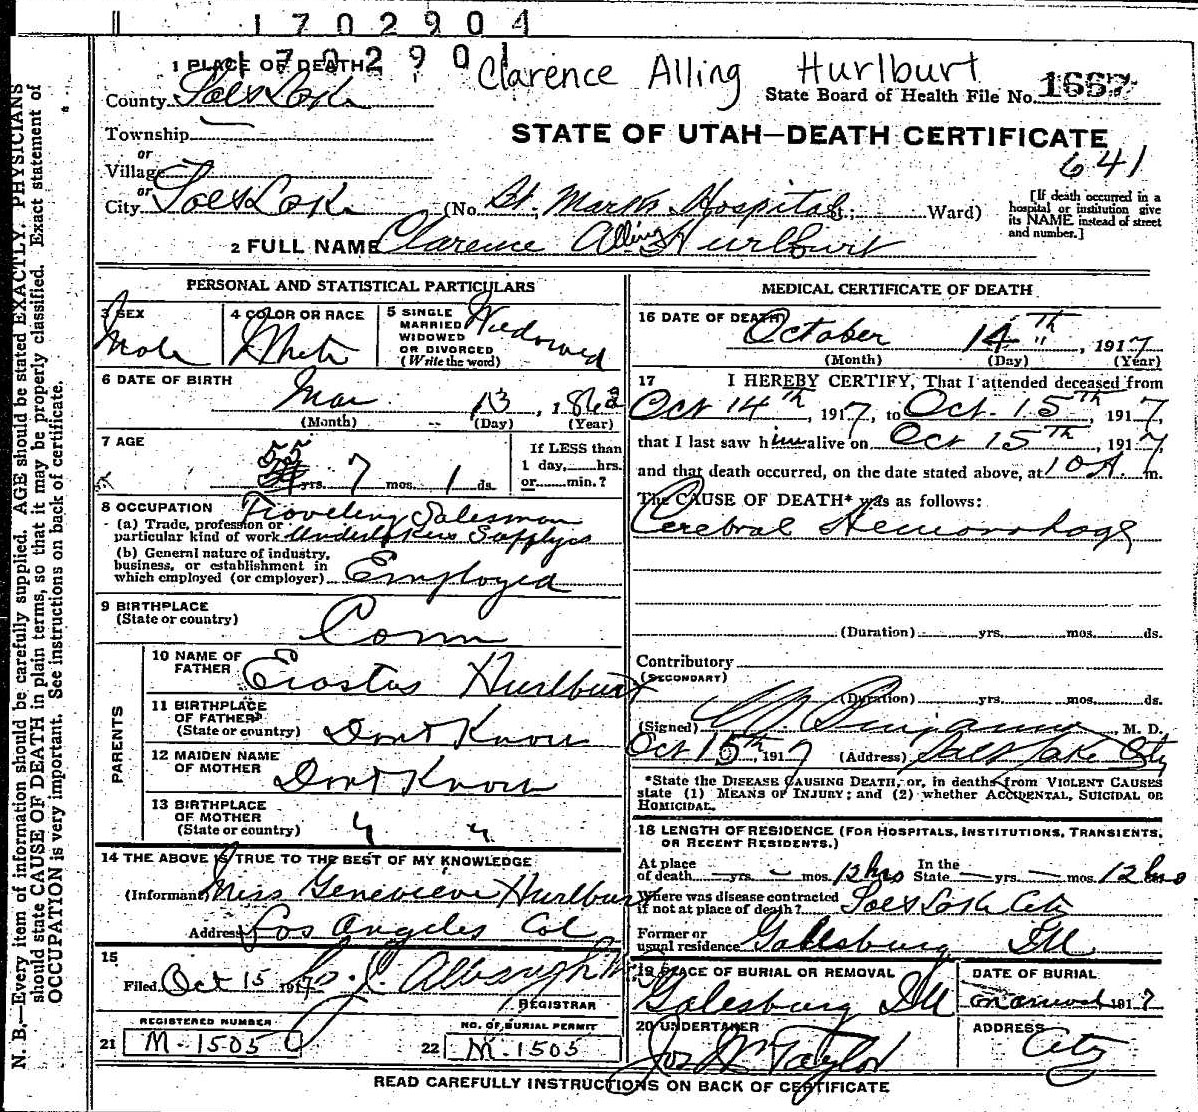 1702904
170290
Clarence Alling Hurlburt
1 PLACE OF DEATH
County Salt Lake
State Board of Health File No. 1667
STATE OF UTAH—DEATH CERTIFICATE
641
Township
or
Village
or
City Salt Lake (No. St. Marks Hospital St.; Ward)
[If death occurred in a hospital or institution give its NAME instead of street and number.]
2 FULL NAME Clarence Alling Hurlburt
PERSONAL AND STATISTICAL PARTICULARS
3 SEX Male
4 COLOR OR RACE White
5 SINGLE MARRIED WIDOWED OR DIVORCED (Write the word) Widowed
6 DATE OF BIRTH Mar 13, 1862
(Month) (Day) (Year)
7 AGE 55 yrs. 7 mos. 1 ds.
If LESS than 1 day, hrs. or min.?
8 OCCUPATION
(a) Trade, profession or particular kind of work Traveling Salesman Undertakers Supplys
(b) General nature of industry, business, or establishment in which employed (or employer) Employed
9 BIRTHPLACE (State or country) Conn
PARENTS
10 NAME OF FATHER Erastas Hurlburt
11 BIRTHPLACE OF FATHER (State or country) Dont Know
12 MAIDEN NAME OF MOTHER Dont Know
13 BIRTHPLACE OF MOTHER (State or country) " "
14 THE ABOVE IS TRUE TO THE BEST OF MY KNOWLEDGE
(Informant) Miss Genevieve Hurlburt
Address Los Angeles Cal
15
Filed Oct 15 1917
REGISTRAR
REGISTERED NUMBER
21 M-1505
NO. OF BURIAL PERMIT
22 M-1505
MEDICAL CERTIFICATE OF DEATH
16 DATE OF DEATH October 14th, 1917
(Month) (Day) (Year)
17 I HEREBY CERTIFY, That I attended deceased from
Oct 14th, 1917, to Oct. 15th, 1917,
that I last saw him alive on Oct 15th, 1917,
and that death occurred, on the date stated above, at 10 A. m.
The CAUSE OF DEATH* was as follows:
Cerebral Hemorrhage
(Duration) yrs. mos. ds.
Contributory
(SECONDARY)
(Duration) yrs. mos. ds.
(Signed) M. D.
Oct 15th, 1917 (Address) Salt Lake City
*State the DISEASE CAUSING DEATH, or, in deaths from VIOLENT CAUSES
state (1) MEANS OF INJURY; and (2) whether ACCIDENTAL, SUICIDAL OR
HOMICIDAL.
18 LENGTH OF RESIDENCE (FOR HOSPITALS, INSTITUTIONS, TRANSIENTS,
OR RECENT RESIDENTS.)
At place of death — yrs. — mos. 12 hrs In the State — yrs. — mos. 12 hrs
Where was disease contracted if not at place of death? Salt Lake City
Former or usual residence Galesburg Ill
19 PLACE OF BURIAL OR REMOVAL Galesburg Ill
DATE OF BURIAL on arrival 1917
20 UNDERTAKER Jos Wm Taylor
ADDRESS City
READ CAREFULLY INSTRUCTIONS ON BACK OF CERTIFICATE
N. B.—Every item of information should be carefully supplied. AGE should be stated EXACTLY. PHYSICIANS
should state CAUSE OF DEATH in plain terms, so that it may be properly classified. Exact statement of
OCCUPATION is very important. See instructions on back of certificate.